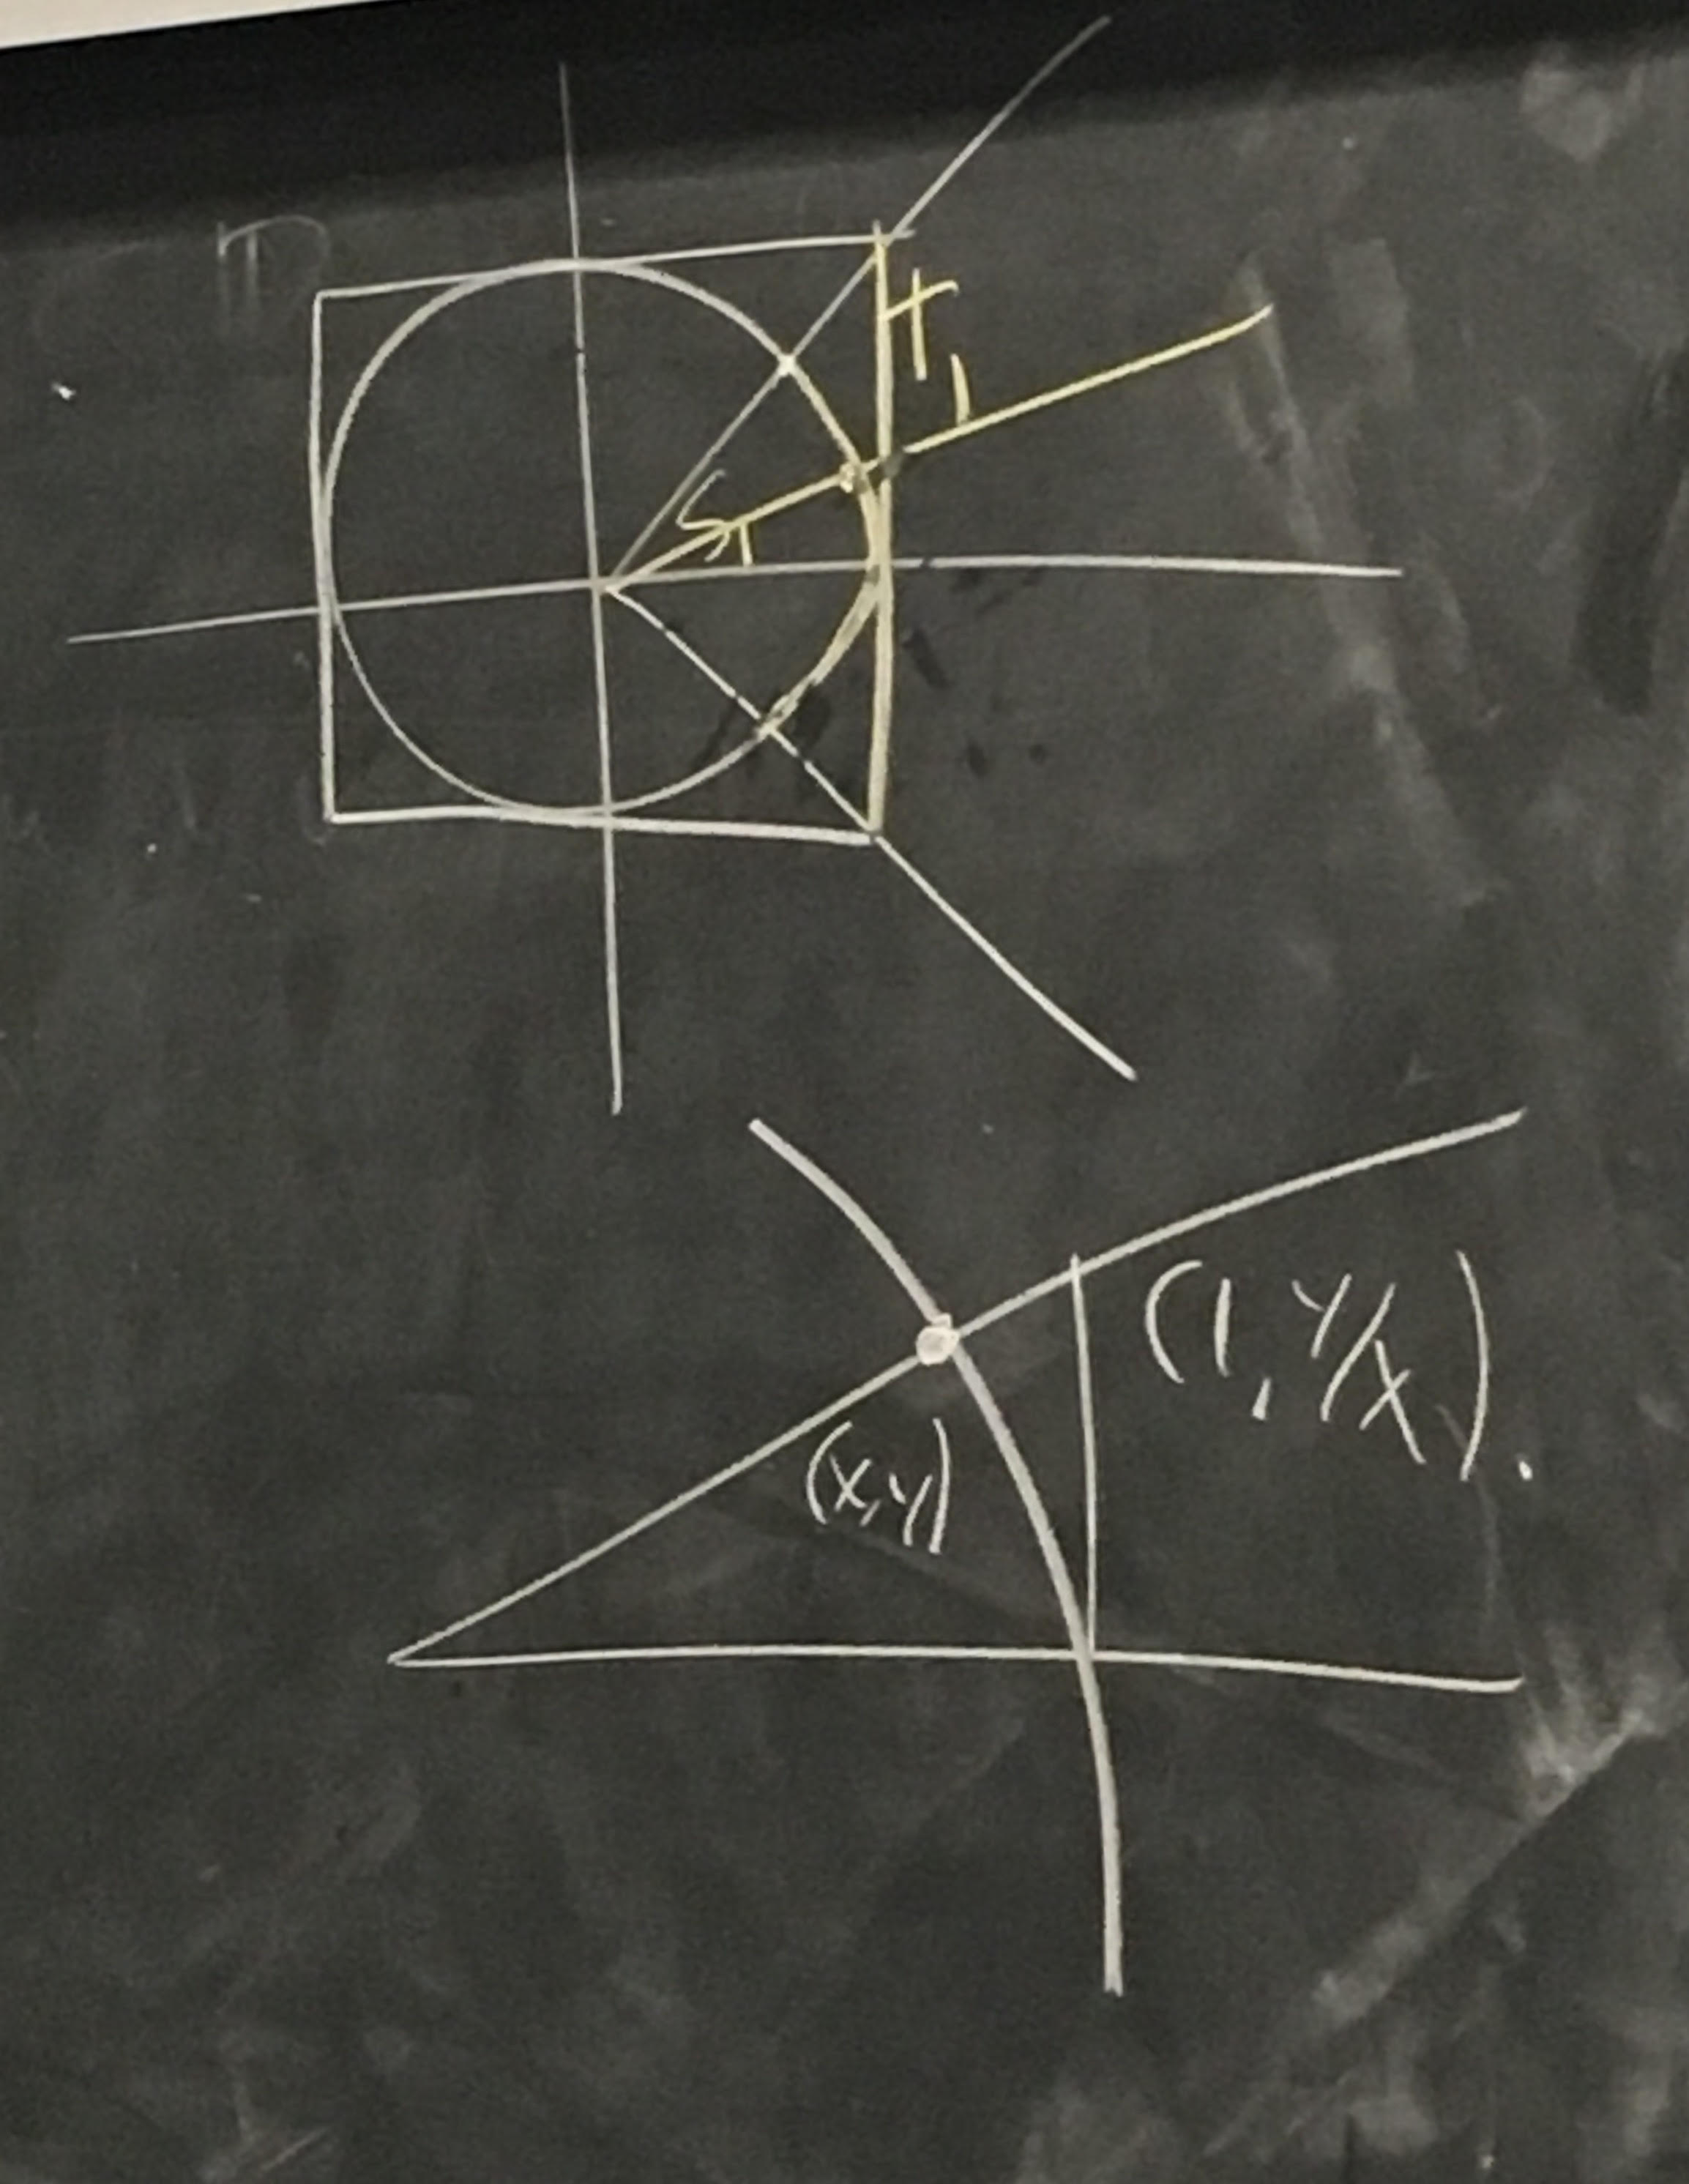 H₁
S₁
(1, y/x).
(x,y)